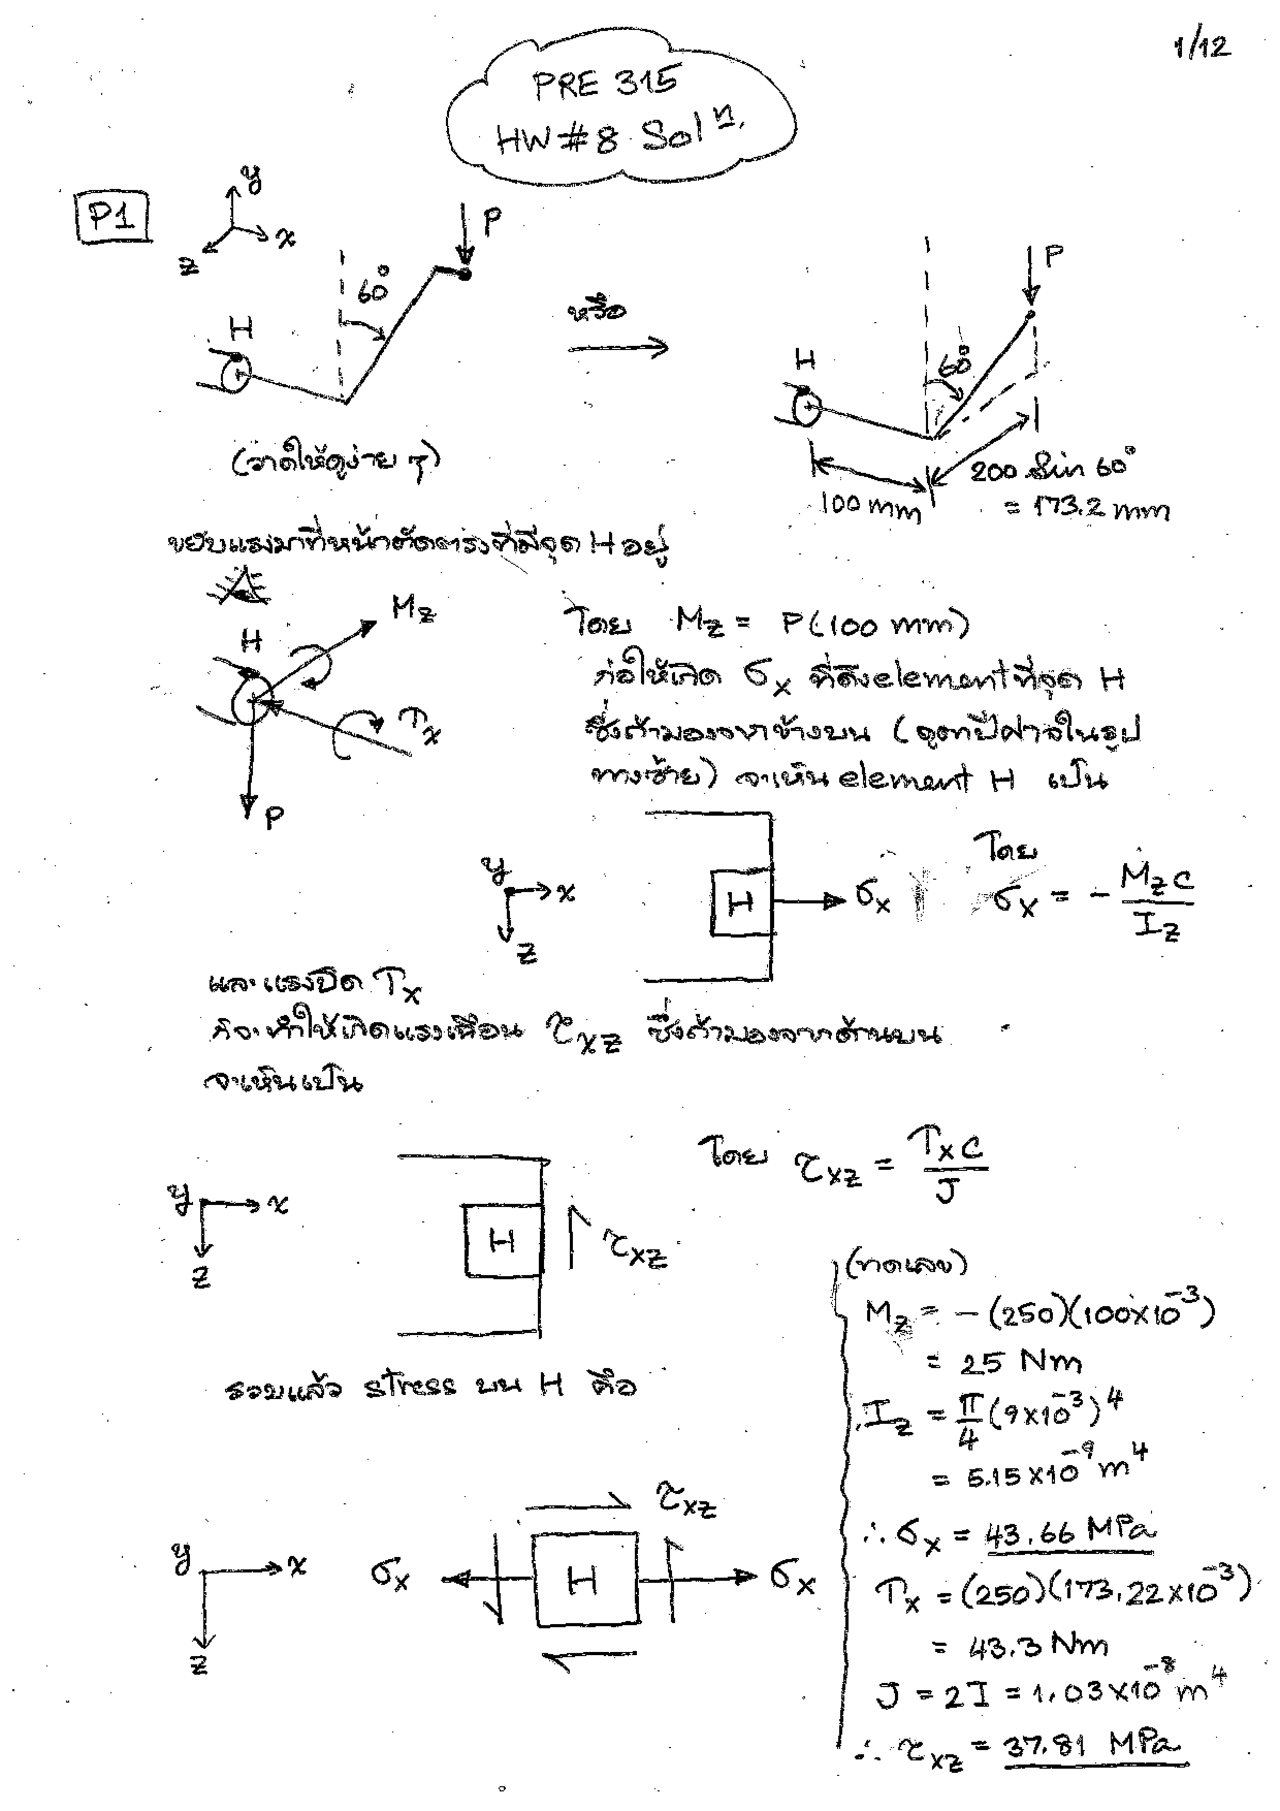 1/12
PRE 315
HW#8 Solⁿ.
P1
y
x
z
P
60°
H
หรือ
P
60°
H
(วาดให้ดูง่าย ๆ)
100 mm
200 sin 60°
= 173.2 mm
ขยับแรงมาที่หน้าตัดตรงที่มีจุด H อยู่
H
Mz
Tx
P
โดย Mz = P(100 mm)
ก่อให้เกิด σx ที่ดึง element ที่จุด H
ซึ่งถ้ามองจากข้างบน (ดูตาปีศาจในรูป
ทางซ้าย) จะเห็น element H เป็น
y
x
z
H
σx
โดย
σx = - Mz c / Iz
และแรงบิด Tx
ก็จะทำให้เกิดแรงเฉือน τxz ซึ่งถ้ามองจากด้านบน
จะเห็นเป็น
y
x
z
H
τxz
โดย τxz = Tx c / J
รวมแล้ว stress บน H คือ
y
x
z
σx
H
τxz
σx
(ทดเลข)
Mz = - (250)(100×10⁻³)
= 25 Nm
Iz = π/4 (9×10⁻³)⁴
= 5.15×10⁻⁹ m⁴
∴ σx = 43.66 MPa
Tx = (250)(173.22×10⁻³)
= 43.3 Nm
J = 2I = 1.03×10⁻⁸ m⁴
∴ τxz = 37.81 MPa